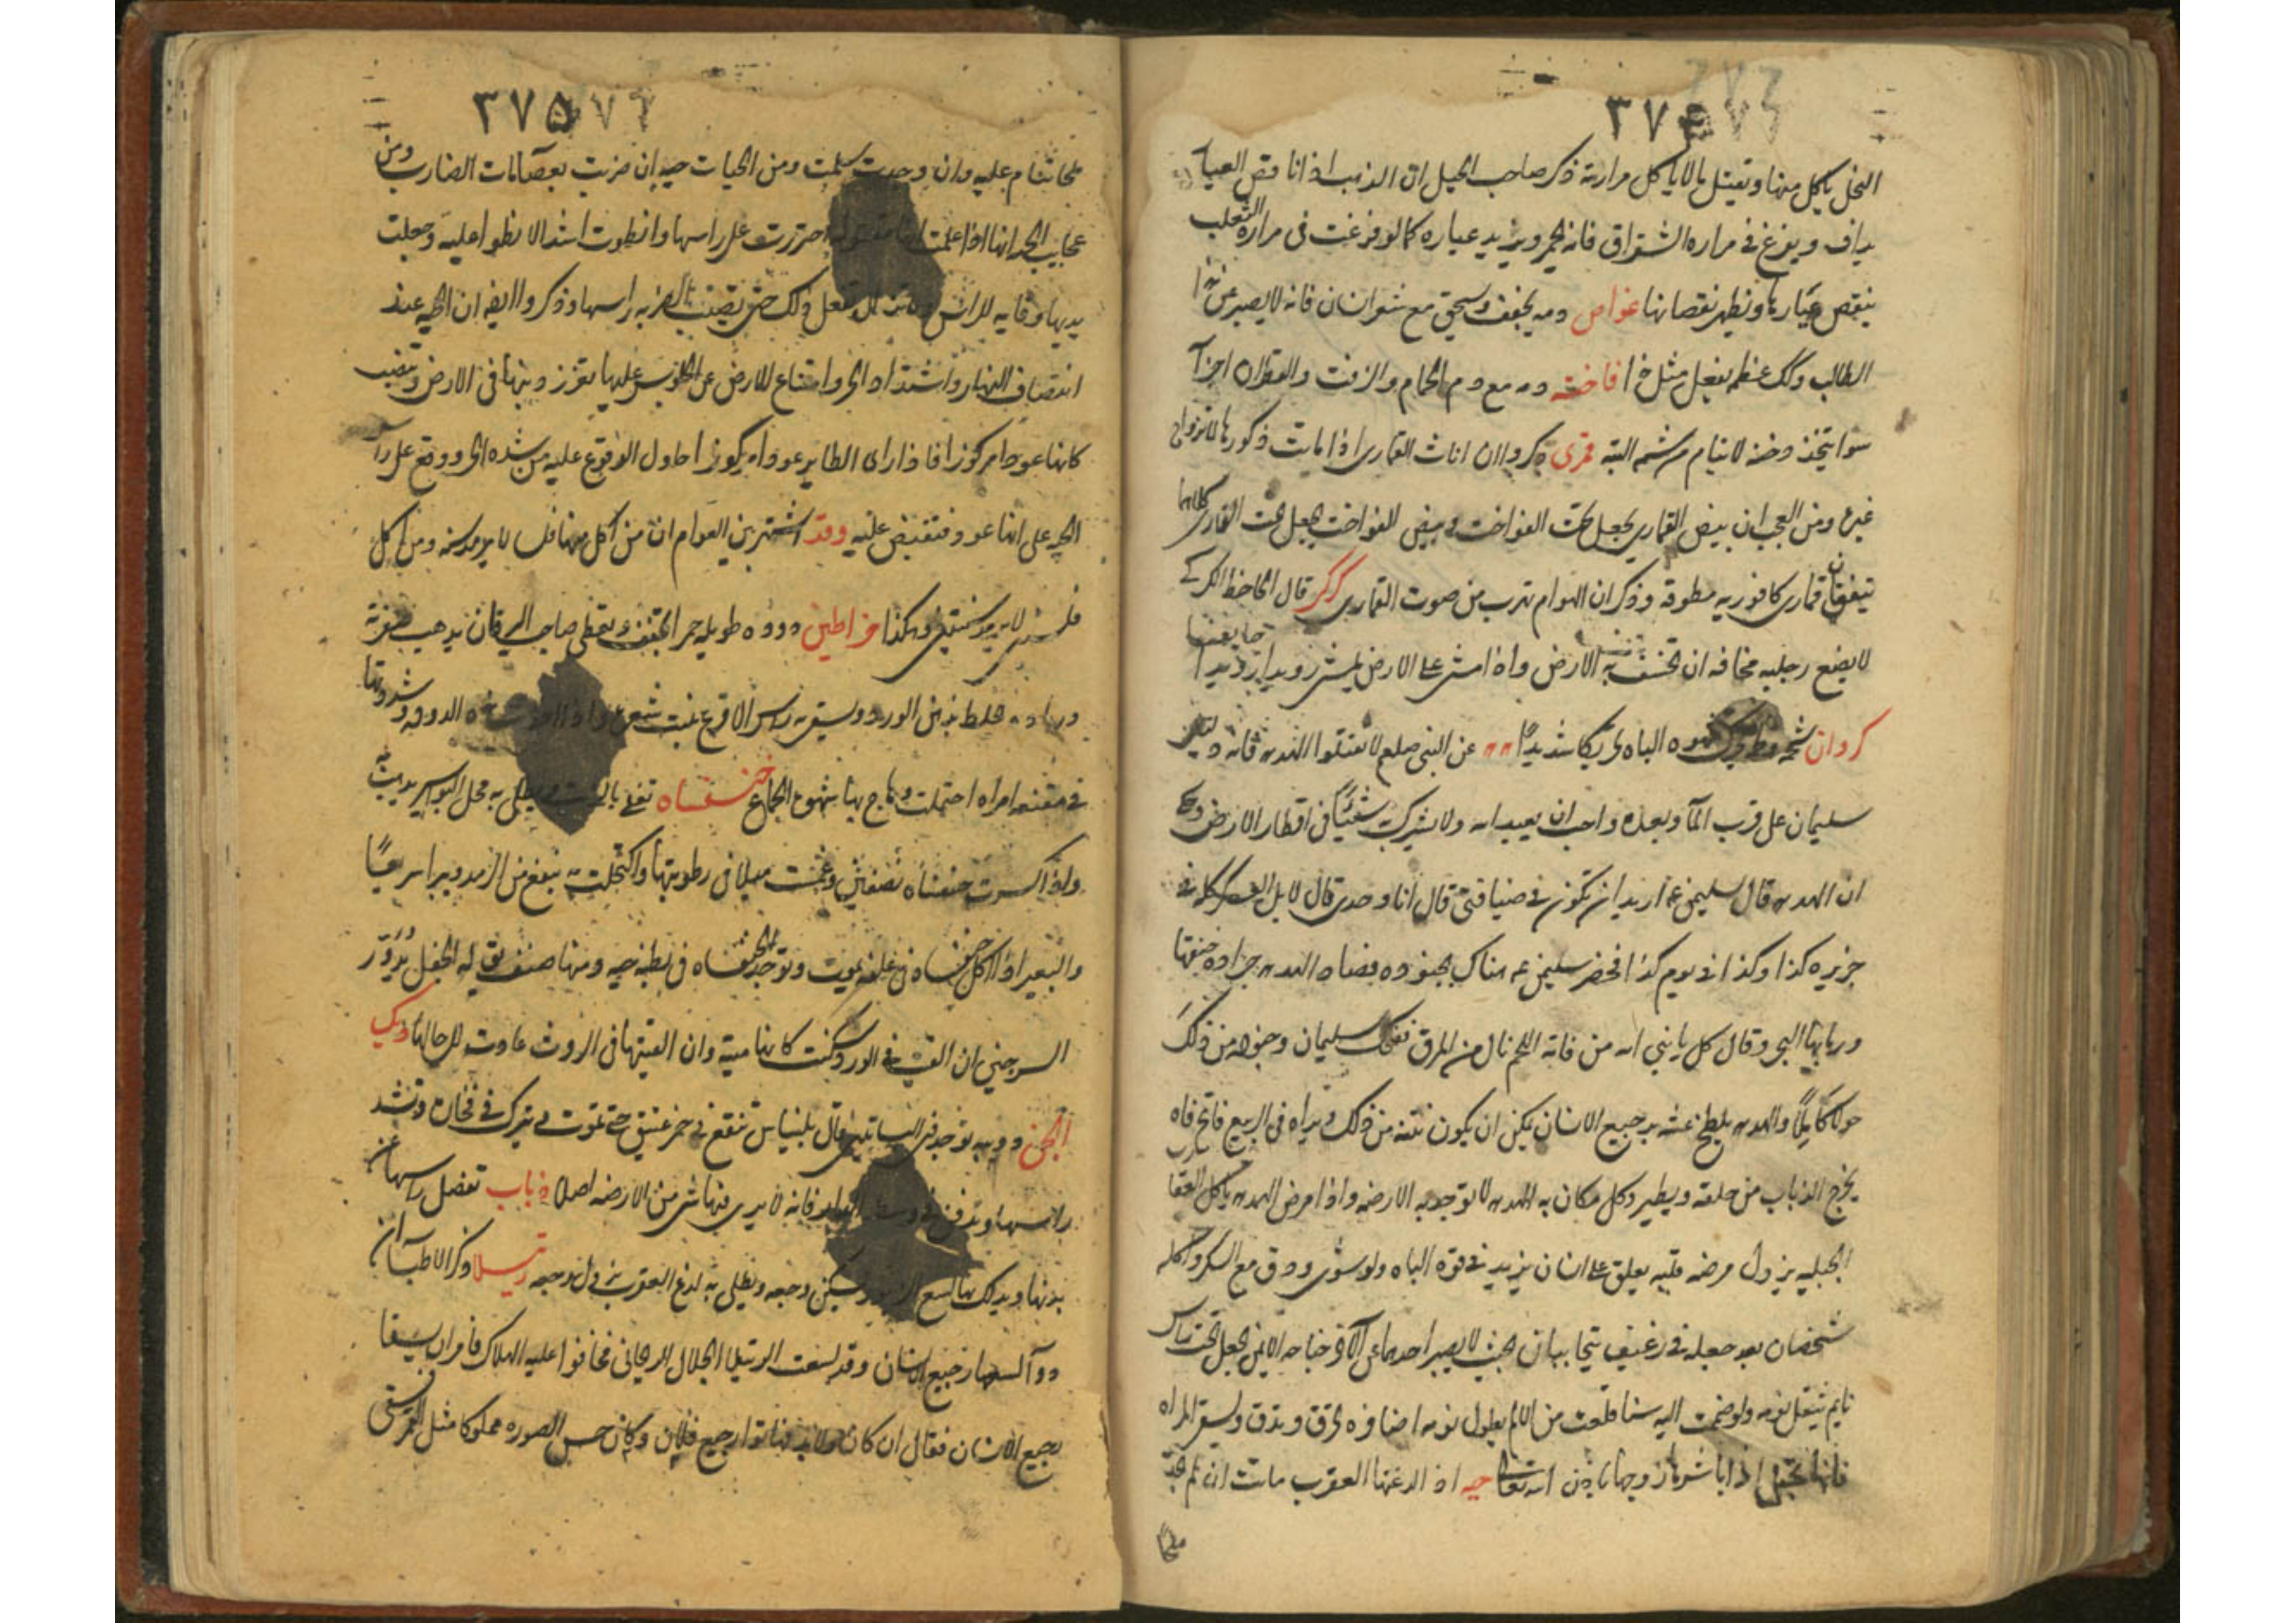 ٣٧٤
النحل ياكل منها وتقتل بالاياكل مرارته ذكر صاحب الحيل ان الذهب اذا نقص العيار
يداف ويفرغ في مراره الشقراق فانه يحمر ويزيد عياره كما لو فرغت في مراره الثعلب
ينقص عيارها ونظهر نقصانها غواص دمه يجفف ويسحق مع شعر انسان فانه لا يصبر عن
الطالب وكك عظمه يفعل مثل هذا فاخته دمه مع دم الحمام والزفت والقطران اجزآ
سوا يتخذ دخنه لا ينام من شمه البته قمرى ذكروا ان اناث القمارى اذا ماتت ذكورها لا تزواج
غيره ومن العجب ان بيض القمارى يجعل تحت الفواخت وبيض الفواخت يجعل تحت القمارى كلاهما
قمارى كافوريه مطوقه وذكر ان الهوام تهرب من صوت القمارى كركى قال الجاحظ الكركى
لا يضع رجليه مخافه ان تخسف به الارض واذا مشى على الارض يمشى رويدا رويدا
كروان شحمه الباه تحريكا شديدا هدهد عن النبى صلعم لا تقتلوا الهدهد فانه دليل
سليمان على قرب المآ وبعده واحب ان يعبد الله ولا يشرك شيئا فى اقطار الارض
ان الهدهد قال لسليمن عم اريد ان تكون فى ضيافتى قال انا وحدى قال لا بل العسكر كله فى
جزيره كذا وكذا فى يوم كذا فحضر سليمن عم هناك بجنوده فصاد الهدهد جراده خنقها
ورماها البحر وقال كل يا نبى الله من فاته اللحم نال من المرق فضحك سليمان وجنوده من ذلك
حولا كاملا والهدهد يلطخ عشه برجيع الانسان يمكن ان يكون نتنه من ذلك ويراه فى الربيع فاتح فاه
يخرج الذباب من حلقه ويطير وكل مكان به الهدهد لا توجد به الارضه واذا مرض الهدهد ياكل العقارب
الجبليه يزول مرضه قلبه يعلق على انسان يزيد فى قوه الباه ولو شوى ودق مع السكر واكله
شخصان بعد جعله فى رغيف يتحابان بحيث لا يصبر احدهما عن الآخر جناحه الايمن يجعل تحت راس
نايم يثقل نومه ولو ضمت اليه سنا قلعت من الالم يطول نومه اظافره تحرق وتدق وتسقى المراه
فانها تحبل اذا باشرها زوجها باذن الله تعالى حيه اذا لدغتها العقرب ماتت ان لم تجد
ملحا
٣٧٥
ملحا تنام عليه وان وجدت سلمت ومن الحيات حيه ان ضربت بعصا مات الضارب ومن
عجايب الحيه انها اذا علمت انها مقتوله احترزت على راسها وانطوت اشد الانطواء عليه وجعلت
بدنها وقايه للراس ولا تزال تفعل ذلك حتى تصيب الضربه راسها وذكروا ايضا ان الحيه عند
انتصاف النهار واشتداد الحر وامتناع الارض عن الجلوس عليها تغرز ذنبها فى الارض وتنتصب
كانها عود مركوز فاذا راى الطاير عودا مركوزا حاول الوقوع عليه من شده الحر ووقع على راس
الحيه على انها عود فتقبض عليه وقد اشتهر بين العوام ان من اكل منها فلسا لا يرمد سنه ومن اكل
فلسين لا يرمد سنتين وهكذا خراطين دوده طويله حمرا تجفف وتعطى صاحب اليرقان يذهب صفرته
ورماده يخلط بدهن الورد ويسقى به راس الاقرع ينبت شعره واذا اخذت هذه الدوده وشدتها
فى مقنعه امراه احتملت وهاج بها شهوه الجماع خنفساه تغلى بالزيت ويطلى به محل البواسير يذهب
واذا كسرت خنفساه نصفين وغمست ميلا فى رطوبتها واكتحلت به ينفع من الرمد ويبرا سريعا
والبعير اذا اكل خنفساه فى علفه يموت وتوجد الخنفساه فى بطنه حيه ومنها صنف يقال له الجعل يدور
السرجين ان القيت فى الورد سكنت كانها ميته وان القيتها فى الروث عادت الى حالها ديك
الجن دويبه توجد فى البساتين قال بليناس تنقع فى خمر عتيق حتى تموت ثم يترك فى فخاره وتشد
راسها وتدفن فى وسط الدار فانه لا يرى فيها شى من الارضه اصلا ذباب تفصل راسها عن
بدنها ويدلك بها لسع الزنبور يسكن وجعه ويطلى به لدغ العقرب يزول وجعه رتيلا ذكر الاطبآ ان
دوآ لسعها رجيع الانسان وقد لسعت الرتيلا الجلال الريحانى فخافوا عليه الهلاك فامر ان يسقا
رجيع الانسان فقال ان كان ولا بد فهاتوا رجيع فلان وكان حسن الصوره مملوكا مثل القمر